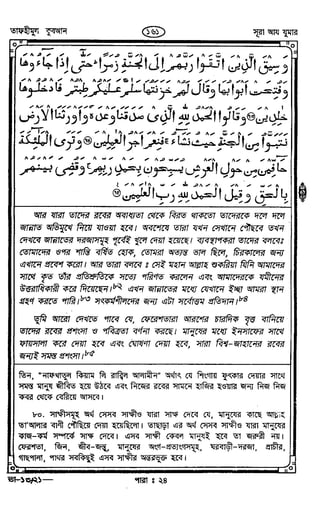 তাফহীমুল কুরআন
১৬১
সূরা আয যুমার
وَسِيقَ الَّذِينَ اتَّقَوْا رَبَّهُمْ إِلَى الْجَنَّةِ زُمَرًا حَتَّىٰ إِذَا جَاءُوهَا
وَفُتِحَتْ أَبْوَابُهَا وَقَالَ لَهُمْ خَزَنَتُهَا سَلَامٌ عَلَيْكُمْ طِبْتُمْ فَادْخُلُوهَا
خَالِدِينَ ﴿٧٣﴾ وَقَالُوا الْحَمْدُ لِلَّهِ الَّذِي صَدَقَنَا وَعْدَهُ وَأَوْرَثَنَا الْأَرْضَ
نَتَبَوَّأُ مِنَ الْجَنَّةِ حَيْثُ نَشَاءُ فَنِعْمَ أَجْرُ الْعَامِلِينَ ﴿٧٤﴾ وَتَرَى الْمَلَائِكَةَ
حَافِّينَ مِنْ حَوْلِ الْعَرْشِ يُسَبِّحُونَ بِحَمْدِ رَبِّهِمْ وَقُضِيَ بَيْنَهُمْ
بِالْحَقِّ وَقِيلَ الْحَمْدُ لِلَّهِ رَبِّ الْعَالَمِينَ ﴿٧٥﴾
আর যারা তাদের রবের অবাধ্যতা থেকে বিরত থাকতো তাদেরকে দলে দলে
জান্নাত অভিমুখে নিয়ে যাওয়া হবে। অবশেষে তারা যখন সেখানে পৌঁছবে তখন
দেখবে জান্নাতের দরজাসমূহ পূর্বেই খুলে দেয়া হয়েছে। ব্যবস্থাপকরা তাদের বলবেঃ
তোমাদের ওপর শান্তি বর্ষিত হোক, তোমরা অত্যন্ত ভাল ছিলে, চিরকালের জন্য
এখানে প্রবেশ করো। আর তারা বলবেঃ সেই মহান আল্লাহর শুকরিয়া যিনি আমাদের
সাথে কৃত তাঁর প্রতিশ্রুতিকে সত্যে পরিণত করলেন এবং আমাদেরকে যমীনের
উত্তরাধিকারী করে দিয়েছেন। এখন জান্নাতের মধ্যে যেখানে ইচ্ছা আমরা স্থান
গ্রহণ করতে পারি। সৎকর্মশীলদের জন্য এটা সর্বোত্তম প্রতিদান।
তুমি আরো দেখতে পাবে যে, ফেরেশতারা আরশের চারদিক বৃত্ত বানিয়ে
তাদের রবের প্রশংসা ও পবিত্রতা বর্ণনা করছে। মানুষের মধ্যে ইনসাফের সাথে
ফায়সালা করে দেয়া হবে এবং ঘোষণা দেয়া হবে, সারা বিশ্ব-জাহানের রবের
জন্যই সমস্ত প্রশংসা।
তিন, "নাফখাতুল কিয়াম লি রাব্বিল আলামীন" অর্থাৎ যে শিংগায় ফুৎকার দেয়ার সাথে
সমস্ত মানুষ জীবিত হয়ে উঠবে এবং নিজের রবের সামনে হাজির হওয়ার জন্য নিজ নিজ
কবর থেকে বেরিয়ে আসবে।
৮০. সাক্ষীসমূহ অর্থ সেসব সাক্ষীও যারা সাক্ষ দেবে যে, মানুষের কাছে আল্লাহ
তা'আলার বাণী পৌঁছিয়ে দেয়া হয়েছিলো। তাছাড়া এর অর্থ সেসব সাক্ষীও যারা মানুষের
কাজ-কর্ম সম্পর্কে সাক্ষ দেবে। এসব সাক্ষী কেবল মানুষই হবে তা জরুরী নয়।
ফেরেশতা, জিন, জীব-জন্তু, মানুষের অংগ-প্রত্যংগসমূহ, ঘরবাড়ী-দরজা, প্রাচীর,
গাছপালা, পাথর সবকিছুই এসব সাক্ষীর অন্তরভুক্ত হবে।
পারা : ২৪